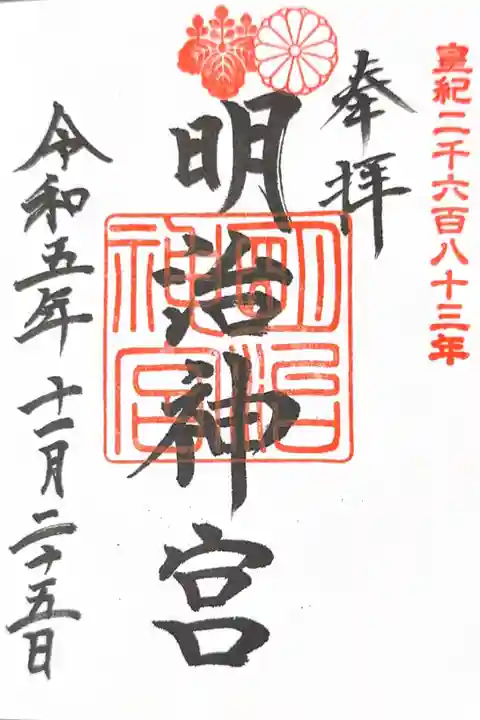 皇紀二千六百八十三年
奉拝
明治神宮
明治神宮
令和五年十一月二十五日